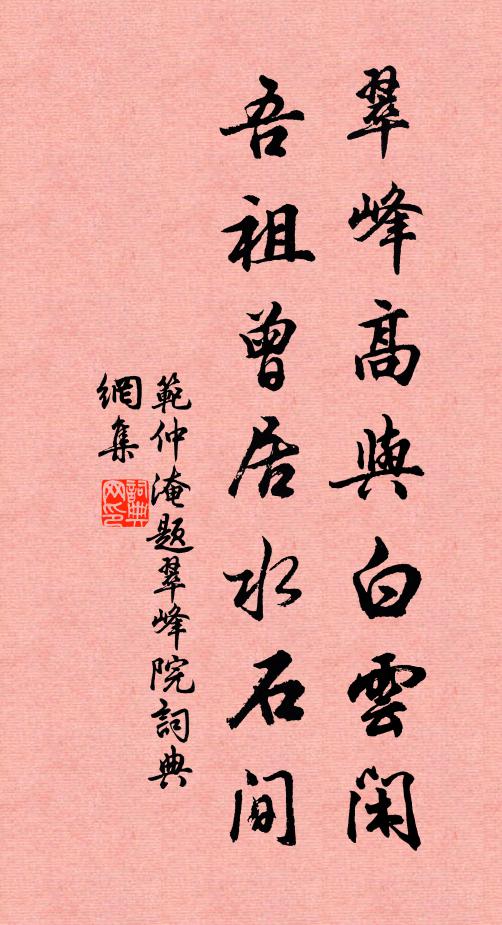 翠峰高與白雲閑
吾祖曾居水石間
範仲淹题翠峰院詞典
網集
詞典
网印